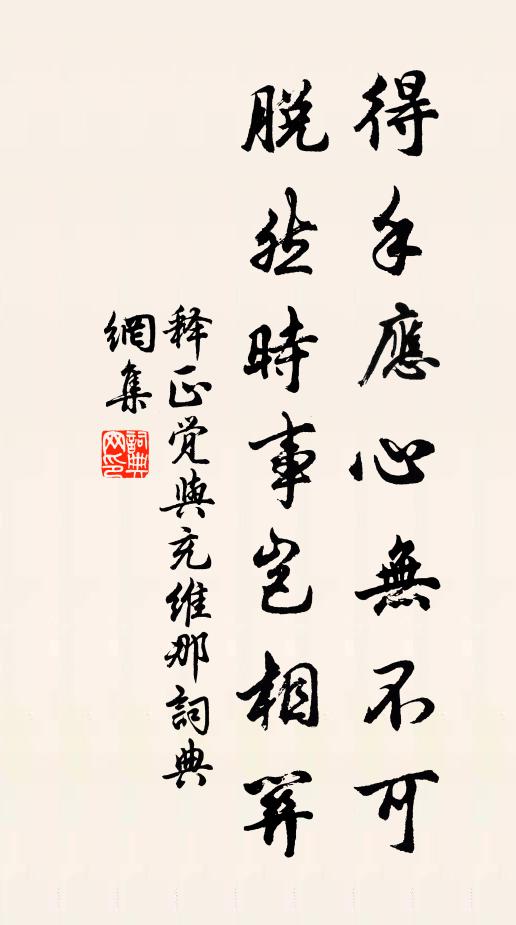 得手應心無不可
脫然時事豈相關
释正觉與充維那詞典
網集
詞典網印